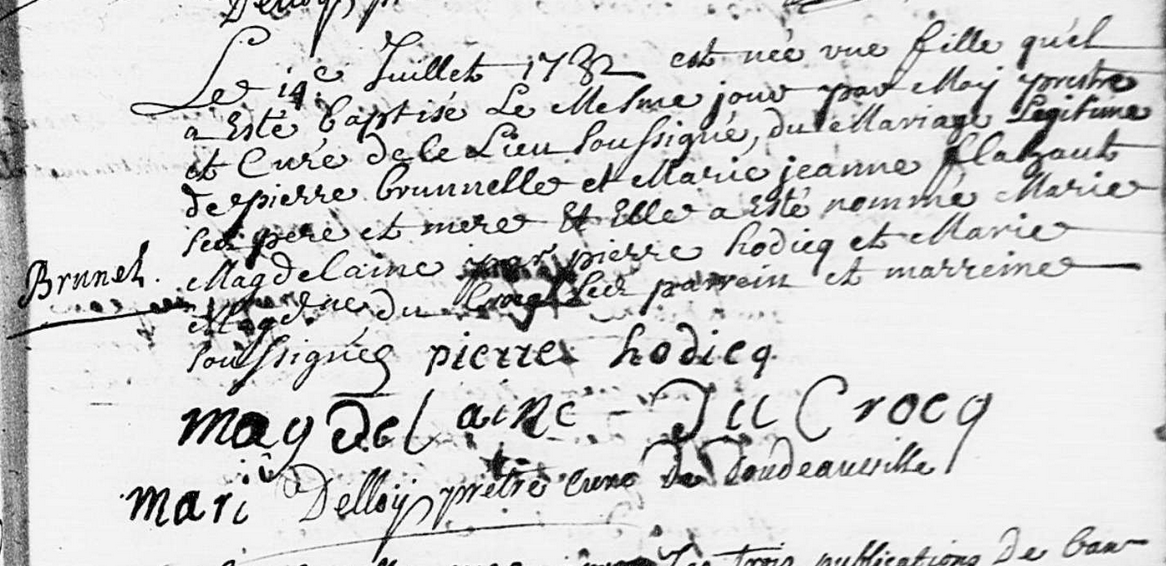 Delloij p
Le 14.e Juillet 1732 est née vne fille quel
a Esté baptisé Le Mesme jour par Moy prestre
et Curé de ce Lieu soussigné, du Mariage Legitime
de pierre brunnelle et Marie jeanne flahaut
ses pere et mere Et Elle a Esté nommé Marie
Magdelaine par pierre hodicq et Marie
Brunel.
Magdne du Crocq ses parrein et marreine
soussignés pierre hodicq
magdelaine - Du Crocq
mari Delloij prêtre curé de Doudeauville
Les trois publications de ban